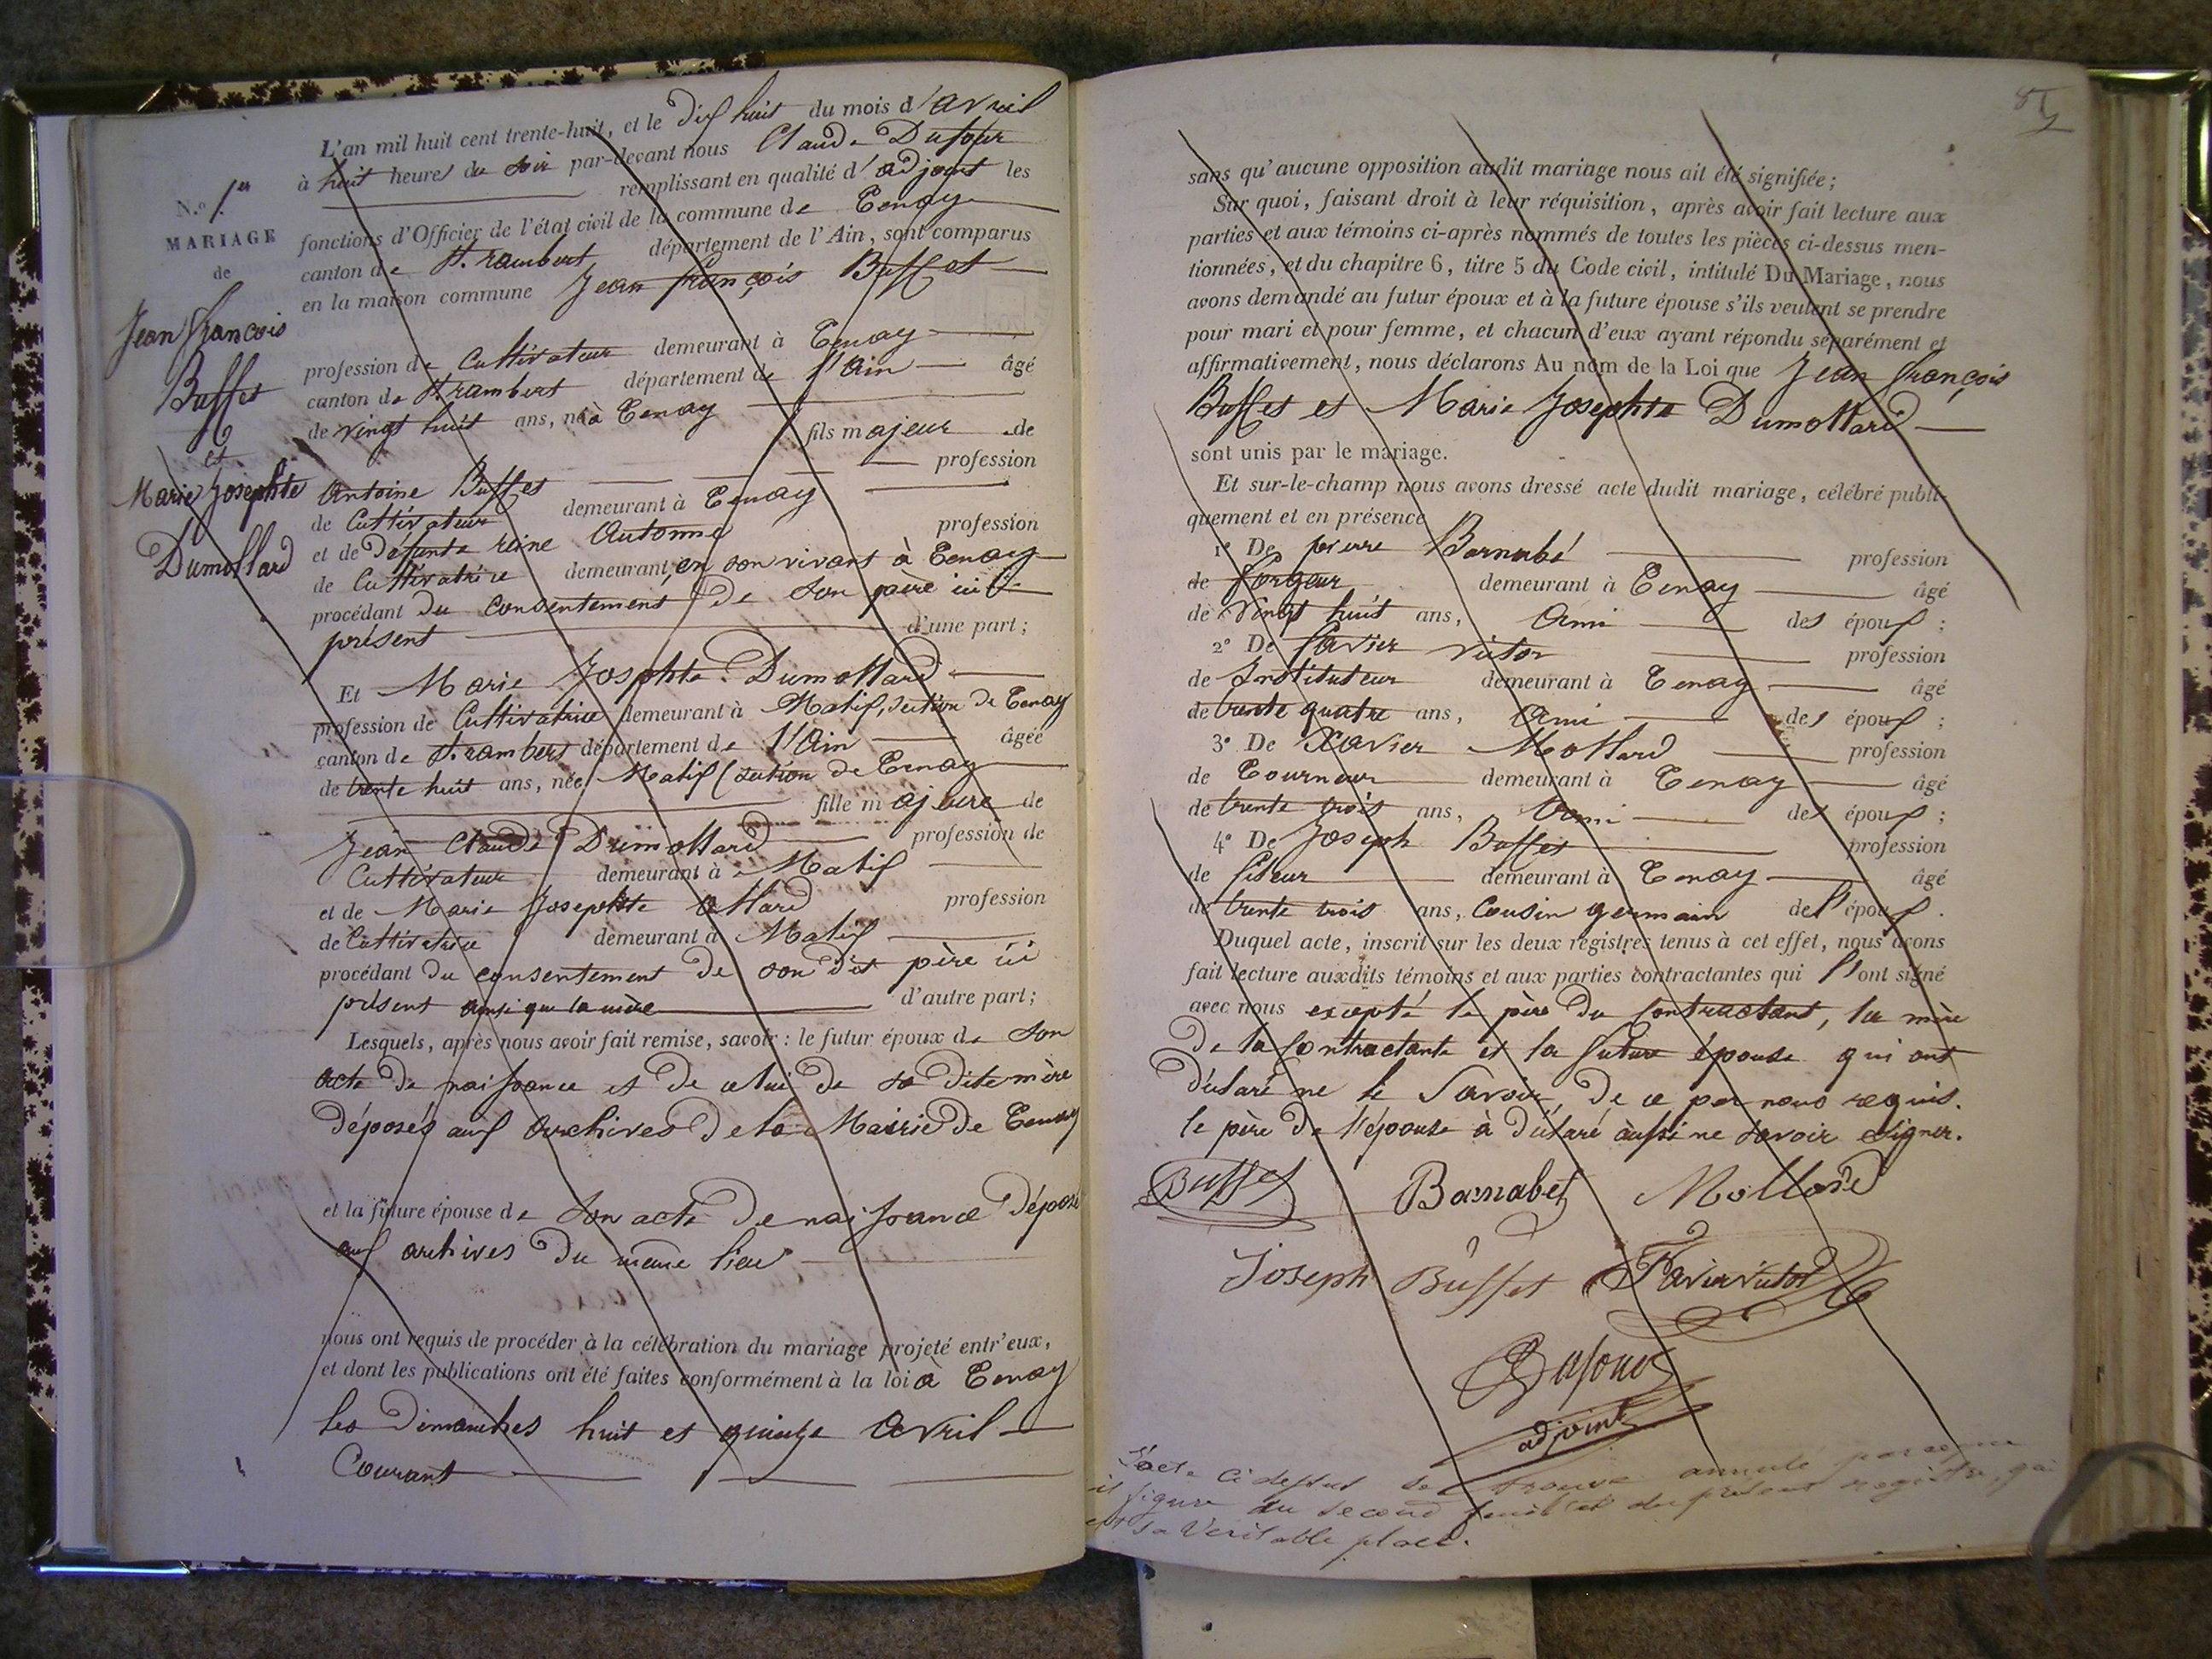 N.o 1er
MARIAGE
de
Jean françois
Buffet
et
Marie Josephte
Dumollard
L'an mil huit cent trente-huit, et le dix huit du mois d'avril
à huit heures du soir par-devant nous Claude Dufour
remplissant en qualité d'adjoint les
fonctions d'Officier de l'état civil de la commune de Tenay
canton de St. rambert département de l'Ain, sont comparus
en la maison commune Jean françois Buffet
profession de Cultivateur demeurant à Tenay
canton de St rambert département de l'Ain âgé
de vingt huit ans, né à Tenay
fils majeur de
Antoine Buffet profession
de Cultivateur demeurant à Tenay
et de défunte reine Automne profession
de Cultivatrice demeurant, en son vivant à Tenay
procédant du consentement de son père ici
présent d'une part;
Et Marie Josephte Dumollard
profession de Cultivatrice demeurant à Matif, section de Tenay
canton de St. rambert département de l'Ain âgée
de trente huit ans, née Matif (section de Tenay
fille majeure de
Jean Claude Dumollard profession de
Cultivateur demeurant à Matif
et de Marie Josephte Allard profession
de Cultivatrice demeurant à Matif
procédant du consentement de son dit père ici
présent ainsi que la mère d'autre part;
Lesquels, après nous avoir fait remise, savoir : le futur époux de son
acte de naissance et de celui de sa dite mère
déposés aux archives de la Mairie de Tenay
et la future épouse de son acte de naissance déposé
aux archives du même lieu
nous ont requis de procéder à la célébration du mariage projeté entr'eux,
et dont les publications ont été faites conformément à la loi à Tenay
les Dimanches huit et quinze avril
Courant
sans qu'aucune opposition audit mariage nous ait été signifiée;
Sur quoi, faisant droit à leur réquisition, après avoir fait lecture aux
parties et aux témoins ci-après nommés de toutes les pièces ci-dessus men-
tionnées, et du chapitre 6, titre 5 du Code civil, intitulé Du Mariage, nous
avons demandé au futur époux et à la future épouse s'ils veulent se prendre
pour mari et pour femme, et chacun d'eux ayant répondu séparément et
affirmativement, nous déclarons Au nom de la Loi que Jean françois
Buffet et Marie Josephte Dumollard
sont unis par le mariage.
Et sur-le-champ nous avons dressé acte dudit mariage, célébré publi-
quement et en présence
1o De pierre Barnabé profession
de forgeur demeurant à Tenay âgé
de vingt huit ans, Ami des époux ;
2o De Favier victor profession
de Instituteur demeurant à Tenay âgé
de trente quatre ans, Ami des époux ;
3o De Xavier Mollard profession
de Tourneur demeurant à Tenay âgé
de trente trois ans, Ami des époux ;
4o De Joseph Buffet profession
de fileur demeurant à Tenay âgé
de trente trois ans, Cousin germain de l'époux.
Duquel acte, inscrit sur les deux registres tenus à cet effet, nous avons
fait lecture auxdits témoins et aux parties contractantes qui l'ont signé
avec nous excepté le père du contractant, la mère
de la contractante et la future épouse qui ont
déclaré ne le savoir, de ce par nous requis.
le père de l'épouse à déclaré aussi ne savoir signer.
Buffet Barnabet Mollard
Joseph Buffet Favier victor
Dufour
adjoint
L'acte ci dessus se trouve annulé parceque
il figure au second feuillet du présent registre, qui
est sa véritable place.